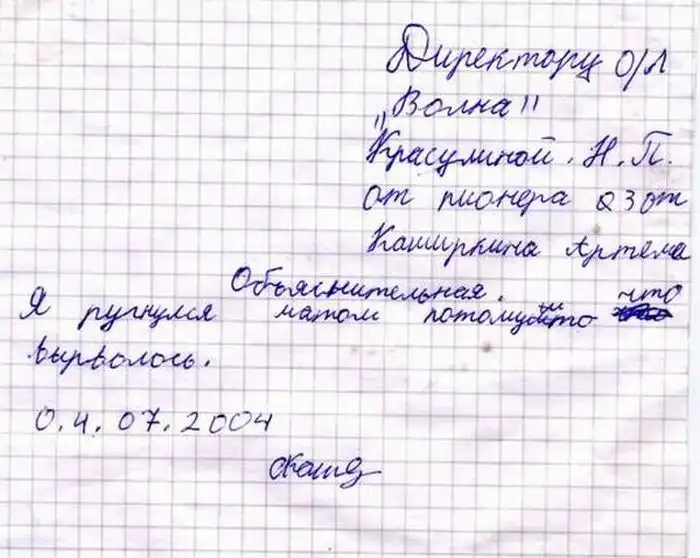 Директору О/Л
„Волна"
Красулиной. Н. П.
от пионера 23 от
Каширкина Артёма
Объяснительная.
Я ругнулся матом потомушто что
вырволось.
0.4.07.2004